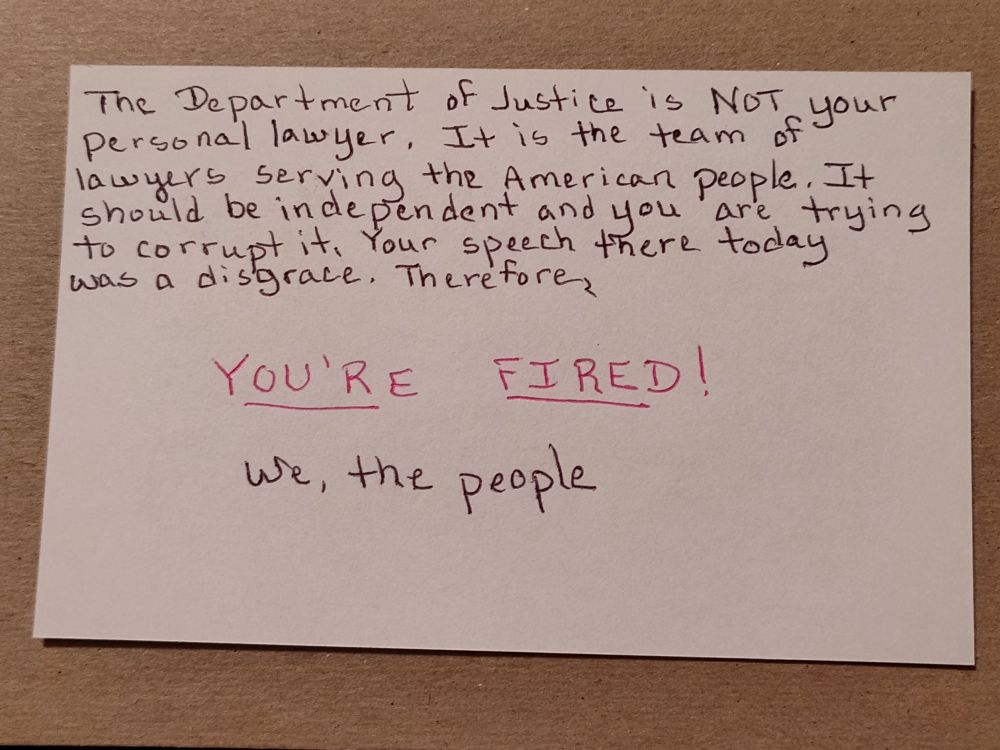 The Department of Justice is NOT your
personal lawyer. It is the team of
lawyers serving the American people. It
should be independent and you are trying
to corrupt it. Your speech there today
was a disgrace. Therefore,
YOU'RE FIRED!
We, the people